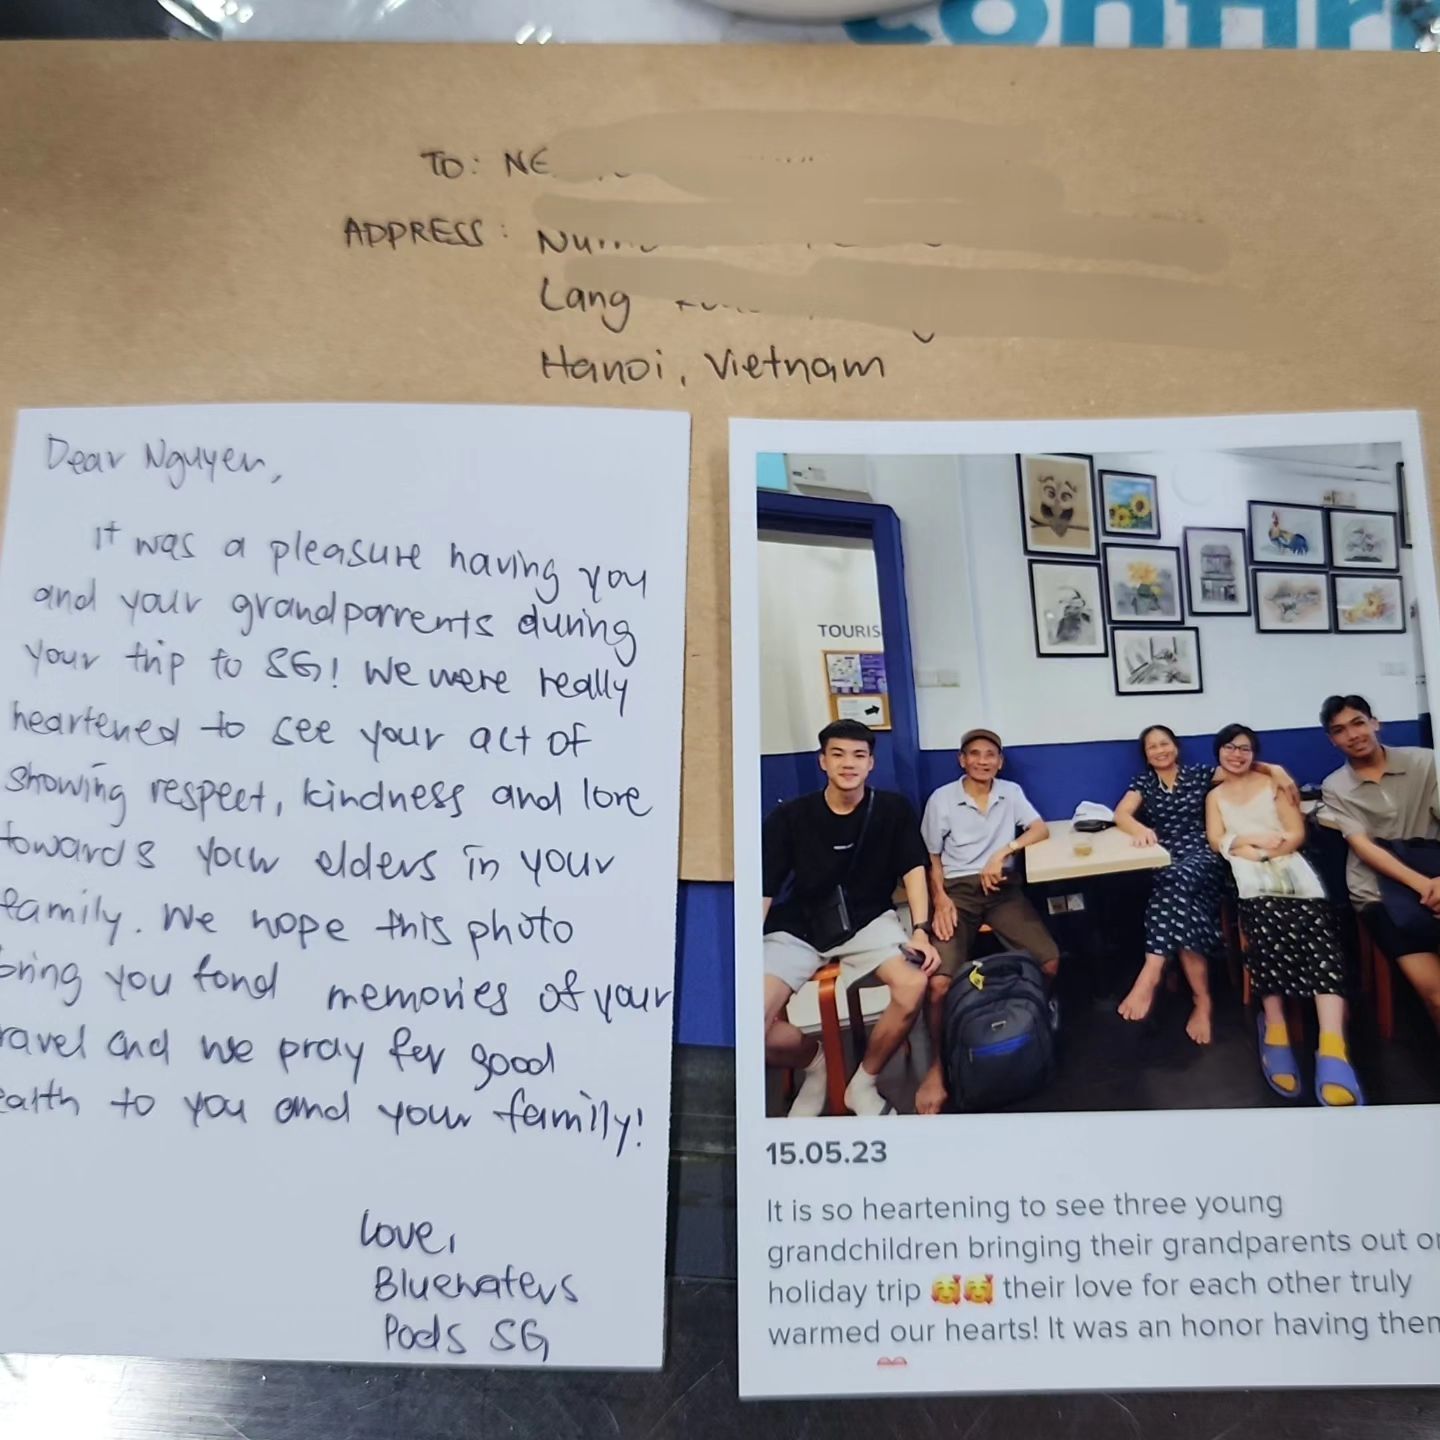 TO: NE
ADDRESS:
Lang
Hanoi, Vietnam
Dear Nguyen,
It was a pleasure having you
and your grandparrents during
your trip to SG! We were really
heartened to see your act of
showing respect, kindness and love
towards your elders in your
family. We hope this photo
bring you fond memories of your
ravel and we pray for good
ealth to you and your family!
Love,
Bluewaters
Pods SG
TOURIS
15.05.23
It is so heartening to see three young
grandchildren bringing their grandparents out on
holiday trip 🥰🥰 their love for each other truly
warmed our hearts! It was an honor having them